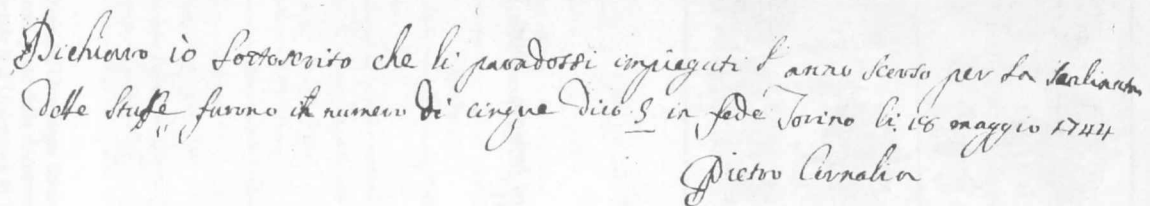 Dichiaro io sottoscrito che li paradossi impiegati l'anno scorso per la
delle stuffe, furono in numero di cinque dico 5 in fede Torino li 18 maggio 1744
Pietro Carnalia